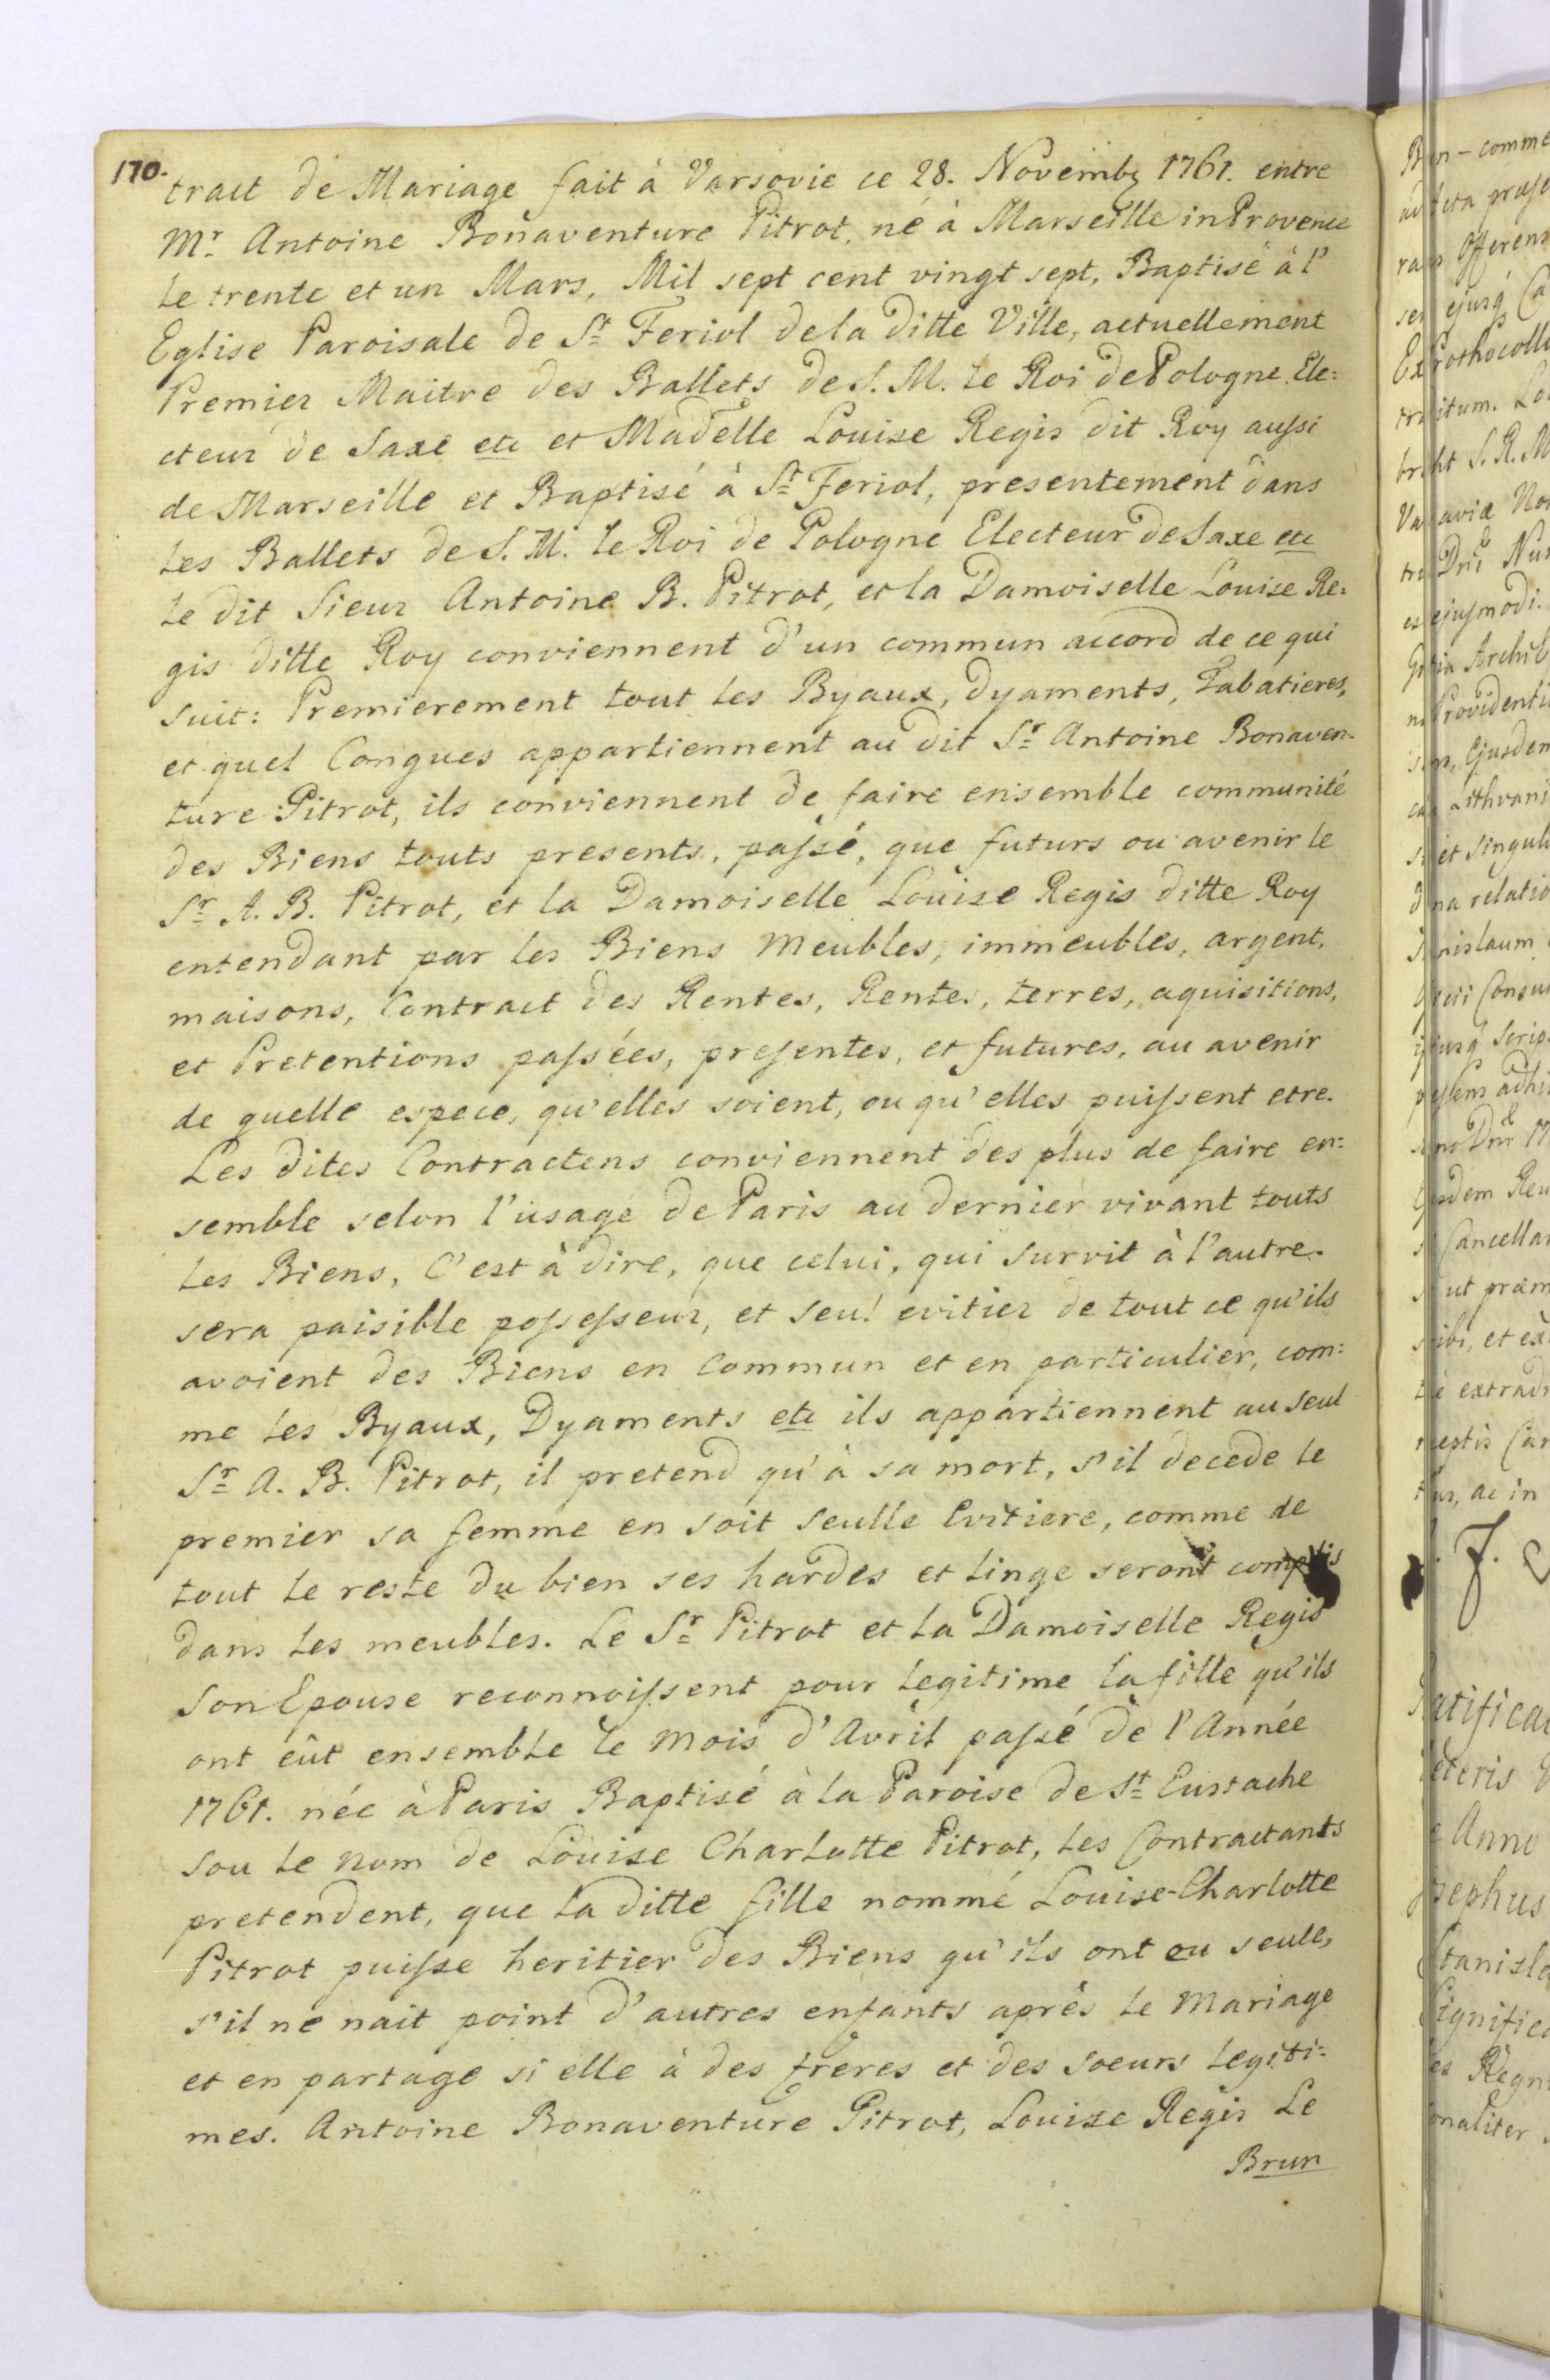 170.
tract de Mariage fait à Varsovie ce 28. Novembr 1761. entre
Mr. Antoine Bonaventure Pitrot, né à Marseille in Provence
le trente et un Mars, Mil sept cent vingt sept, Baptisé à l'
Eglise Paroisale de St Feriol de la ditte Ville, actuellement
Premier Maitre des Ballets de S. M. le Roi de Pologne Ele:
cteur de Saxe etc et Madelle Louise Regis dit Roy aussi
de Marseille et Baptisé à St Feriol, presentement dans
les Ballets de S. M. le Roi de Pologne Electeur de Saxe etc
le dit Sieur Antoine B. Pitrot, et la Damoiselle Louise Re:
gis ditte Roy conviennent d'un commun accord de ce qui
suit: Premierement tout les Byaux, dyaments, Tabatieres,
et quel Conques appartiennent au dit Sr Antoine Bonaven-
ture Pitrot, ils conviennent de faire ensemble communité
des Biens touts presents, passé, que futurs ou avenir le
Sr A. B. Pitrot, et la Damoiselle Louise Regis ditte Roy
entendant par les Biens Meubles, immeubles, argent,
maisons, Contract des Rentes, Rentes, terres, aquisitions,
et Pretentions passées, presentes, et futures, au avenir
de quelle espece, qu'elles soient, ou qu'elles puissent etre.
Les dites Contractens conviennent des plus de faire en:
semble selon l'usage de Paris au dernier vivant touts
les Biens, C'est à dire, que celui, qui survit à l'autre.
sera paisible possesseur, et seul evitier de tout ce qu'ils
avoient des Biens en Commun et en particulier, com:
me les Byaux, Dyaments etc ils appartiennent au seul
Sr A. B. Pitrot, il pretend qu'à sa mort, s'il decede le
premier sa femme en soit seulle Evitiere, comme de
tout le reste du bien ses hardes et linge seront compris
dans les meubles. Le Sr Pitrot et la Damoiselle Regis
son Epouse reconnoissent pour legitime la fille qu'ils
ont eût ensemble le Mois d'Avril passé de l'Année
1761. née à Paris Baptisé à la Paroise de St Eustache
sou le nom de Louise Charlotte Pitrot, les Contractants
pretendent, que la ditte fille nommé Louise-Charlotte
Pitrot puisse heritier des Biens qu'ils ont ou seule,
s'il ne nait point d'autres enfants aprés le Mariage
et en partage si elle à des freres et des soeurs legiti-
mes. Antoine Bonaventure Pitrot, Louise Regis Le
Brun